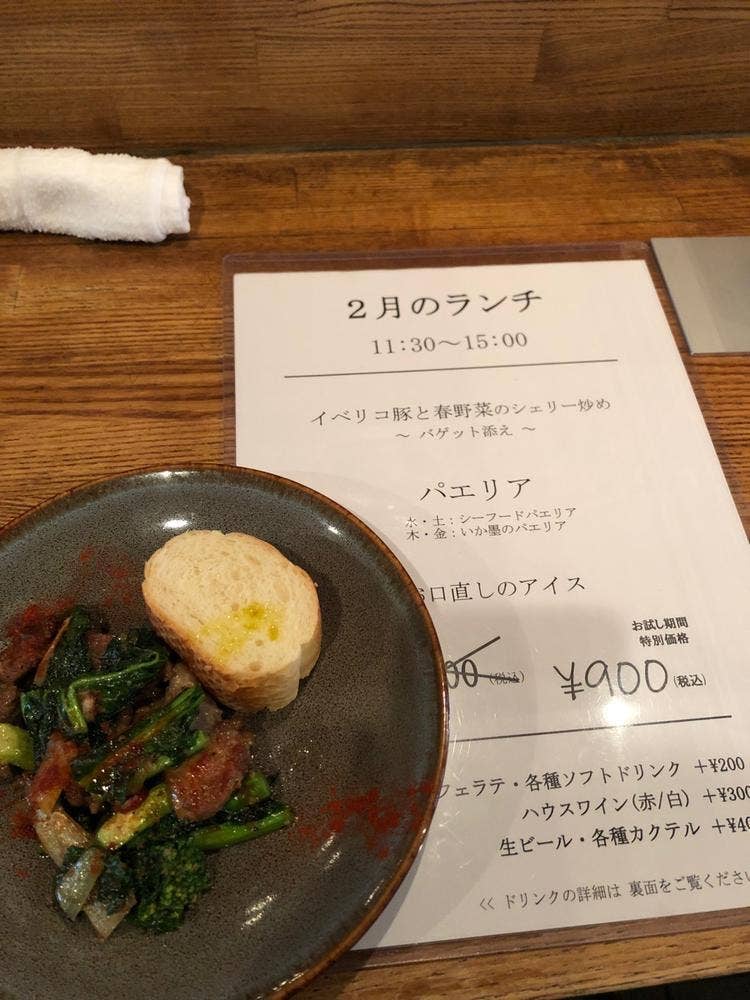 2月のランチ
11:30～15:00
イベリコ豚と春野菜のシェリー炒め
～ バゲット添え ～
パエリア
水・土：シーフードパエリア
木・金：いか墨のパエリア
口直しのアイス
お試し期間
特別価格
00(税込)
¥900(税込)
フェラテ・各種ソフトドリンク +¥200
ハウスワイン(赤/白) +¥300
生ビール・各種カクテル +¥40
<< ドリンクの詳細は 裏面をご覧ください